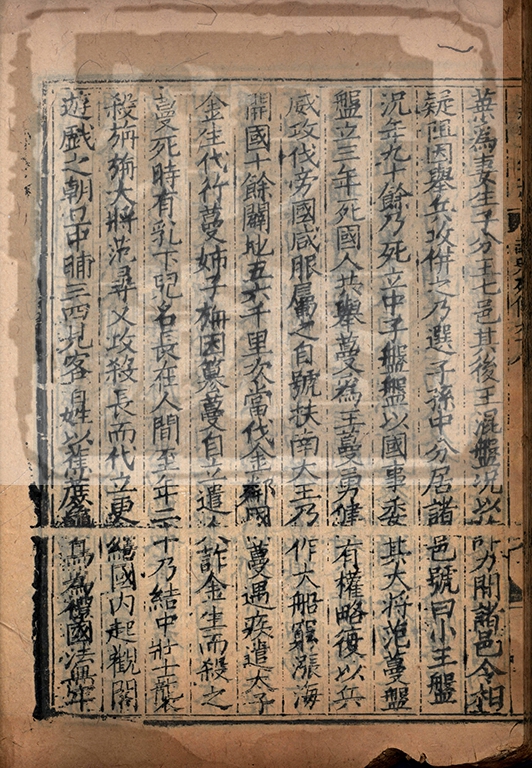 葉為妻生子分王七邑其後王混盤況以詐力間諸邑令相
疑阻因舉兵攻併之乃選子孫中分居諸邑號曰小王盤
況年九十餘乃死立中子盤盤以國事委其大將范蔓盤
盤立三年死國人共舉蔓為王蔓勇健有權略復以兵
威攻伐旁國咸服屬之自號扶南大王乃作大船窮漲海
開國十餘闢地五六千里次當代金鄰國蔓遇疾遣太子
金生代行蔓姊子旃因篡蔓自立遣人詐金生而殺之
蔓死時有乳下兒名長在人間至年二十乃結中壯士襲
殺旃旃大將范尋又攻殺長而代立更繕國內起觀閣
遊戲之朝旦中晡三四見客百姓以蕉蔗龜鳥為禮國法無牢